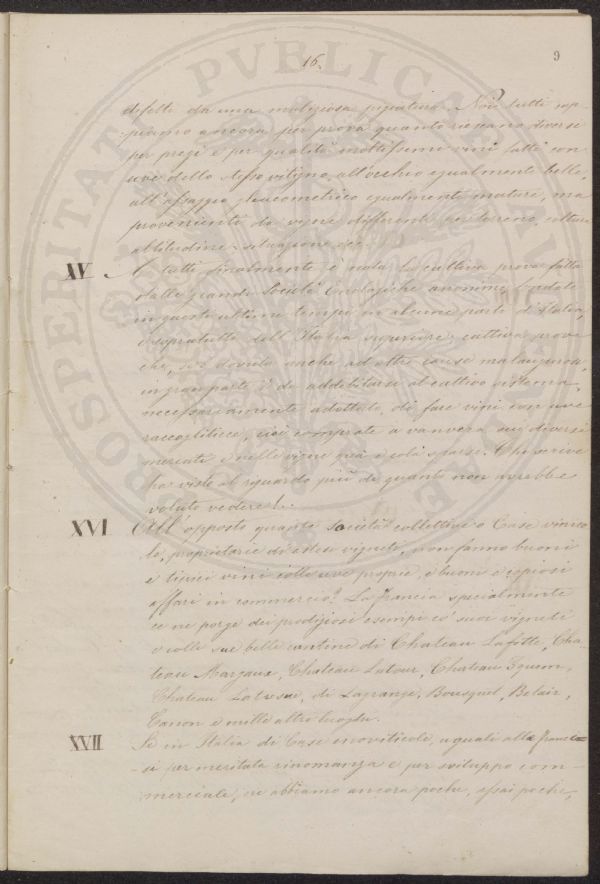 16.
9
difetti da una maliziosa pigiatura. Noi tutti sap-
piamo ancora per prova quanto riescano diversi
per pregi e per qualità moltissimi vini fatti con
uve dello stesso vitigno, all'occhio egualmente belle,
all'assaggio gleucometrico egualmente mature, ma
provenienti da vigne differenti per terreno, coltura
altitudine, situazione, ecc.
XV A tutti finalmente è nota la cattiva prova fatta
dalle grandi Società Enologiche anonime fondate
in questi ultimi tempi in alcune parti d'Italia,
e sopratutto dell'Italia superiore; cattiva prova
che, se dovuta anche ad altre cause malaugurate,
in gran parte è da addebitarsi al cattivo sistema,
necessariamente adottato, di fare vini con uve
raccogliticce, cioè comprate a vanvera sui diversi
mercati e nelle vigne qua e colà sparse. Chi scrive
ha visto al riguardo più di quanto non avrebbe
voluto vedere!..
XVI All'opposto quante Società collettive o Case vinico-
le, proprietarie di estesi vigneti, non fanno buoni
e tipici vini colle uve proprie, e buoni e copiosi
affari in commercio? La Francia specialmente
ce ne porge dei prodigiosi esempi co' suoi vigneti
e colle sue belle cantine di Chateau Lafitte, Cha-
teau Margaux, Chateau Latour, Chateau Yquem,
Chateau Larose, di Lagrange, Bousquet, Belair,
Canon e mille altri luoghi.
XVII Se in Italia di Case enoviticole, uguali alle france-
si per meritata rinomanza e per sviluppo com-
merciale, ne abbiamo ancora poche, assai poche,
PROSPERITATI PVBLICAE